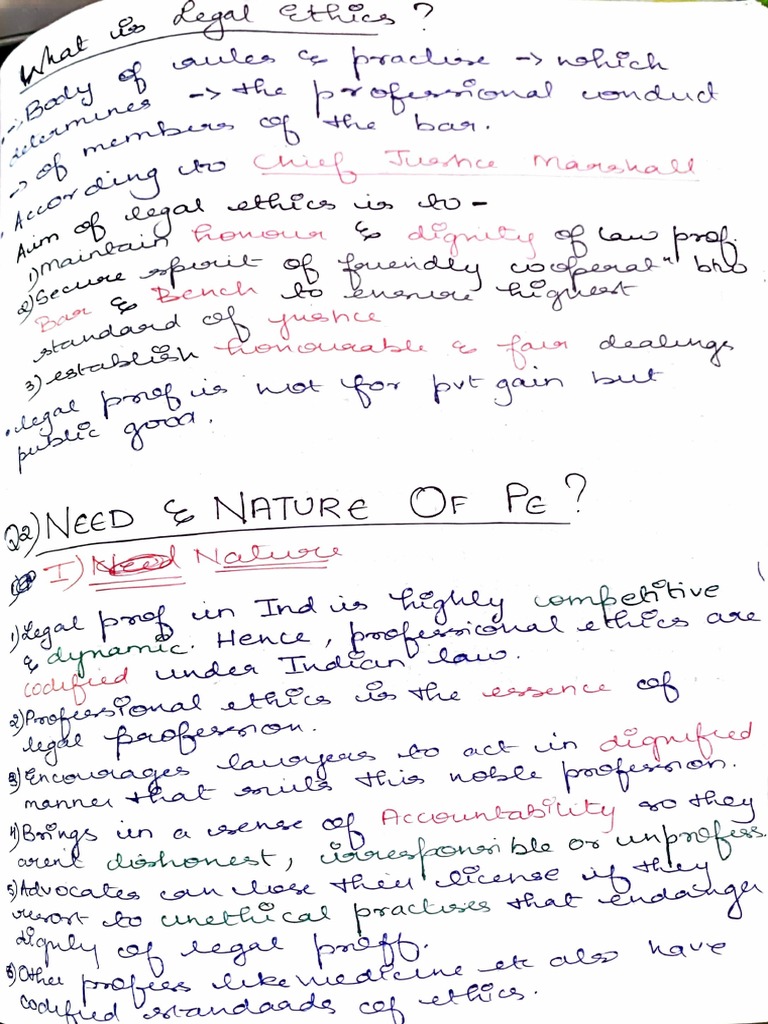 What is Legal Ethics?
-> Body of rules & practise -> which
determines -> the professional conduct
-> of members of the bar.
• According to Chief Justice Marshall
Aim of legal ethics is to -
1) Maintain honour & dignity of law prof.
2) Secure spirit of friendly cooperatn b/w
Bar & Bench to ensure highest
standard of justice
3) establish honourable & fair dealings
• legal prof is not for pvt gain but
public good.
Q2) NEED & NATURE OF PE?
I) Need Nature
1) Legal prof in Ind is highly competitive
& dynamic. Hence, professional ethics are
codified under Indian law.
2) Professional ethics is the essence of
legal profession.
3) Encourages lawyers to act in dignified
manner that suits this noble profession.
4) Brings in a sense of Accountability so they
arent dishonest, irresponsible or unprofess.
5) Advocates can lose their license if they
resort to unethical practises that endanger
dignity of legal proff.
6) Other profess like medicine etc also have
codified standards of ethics.